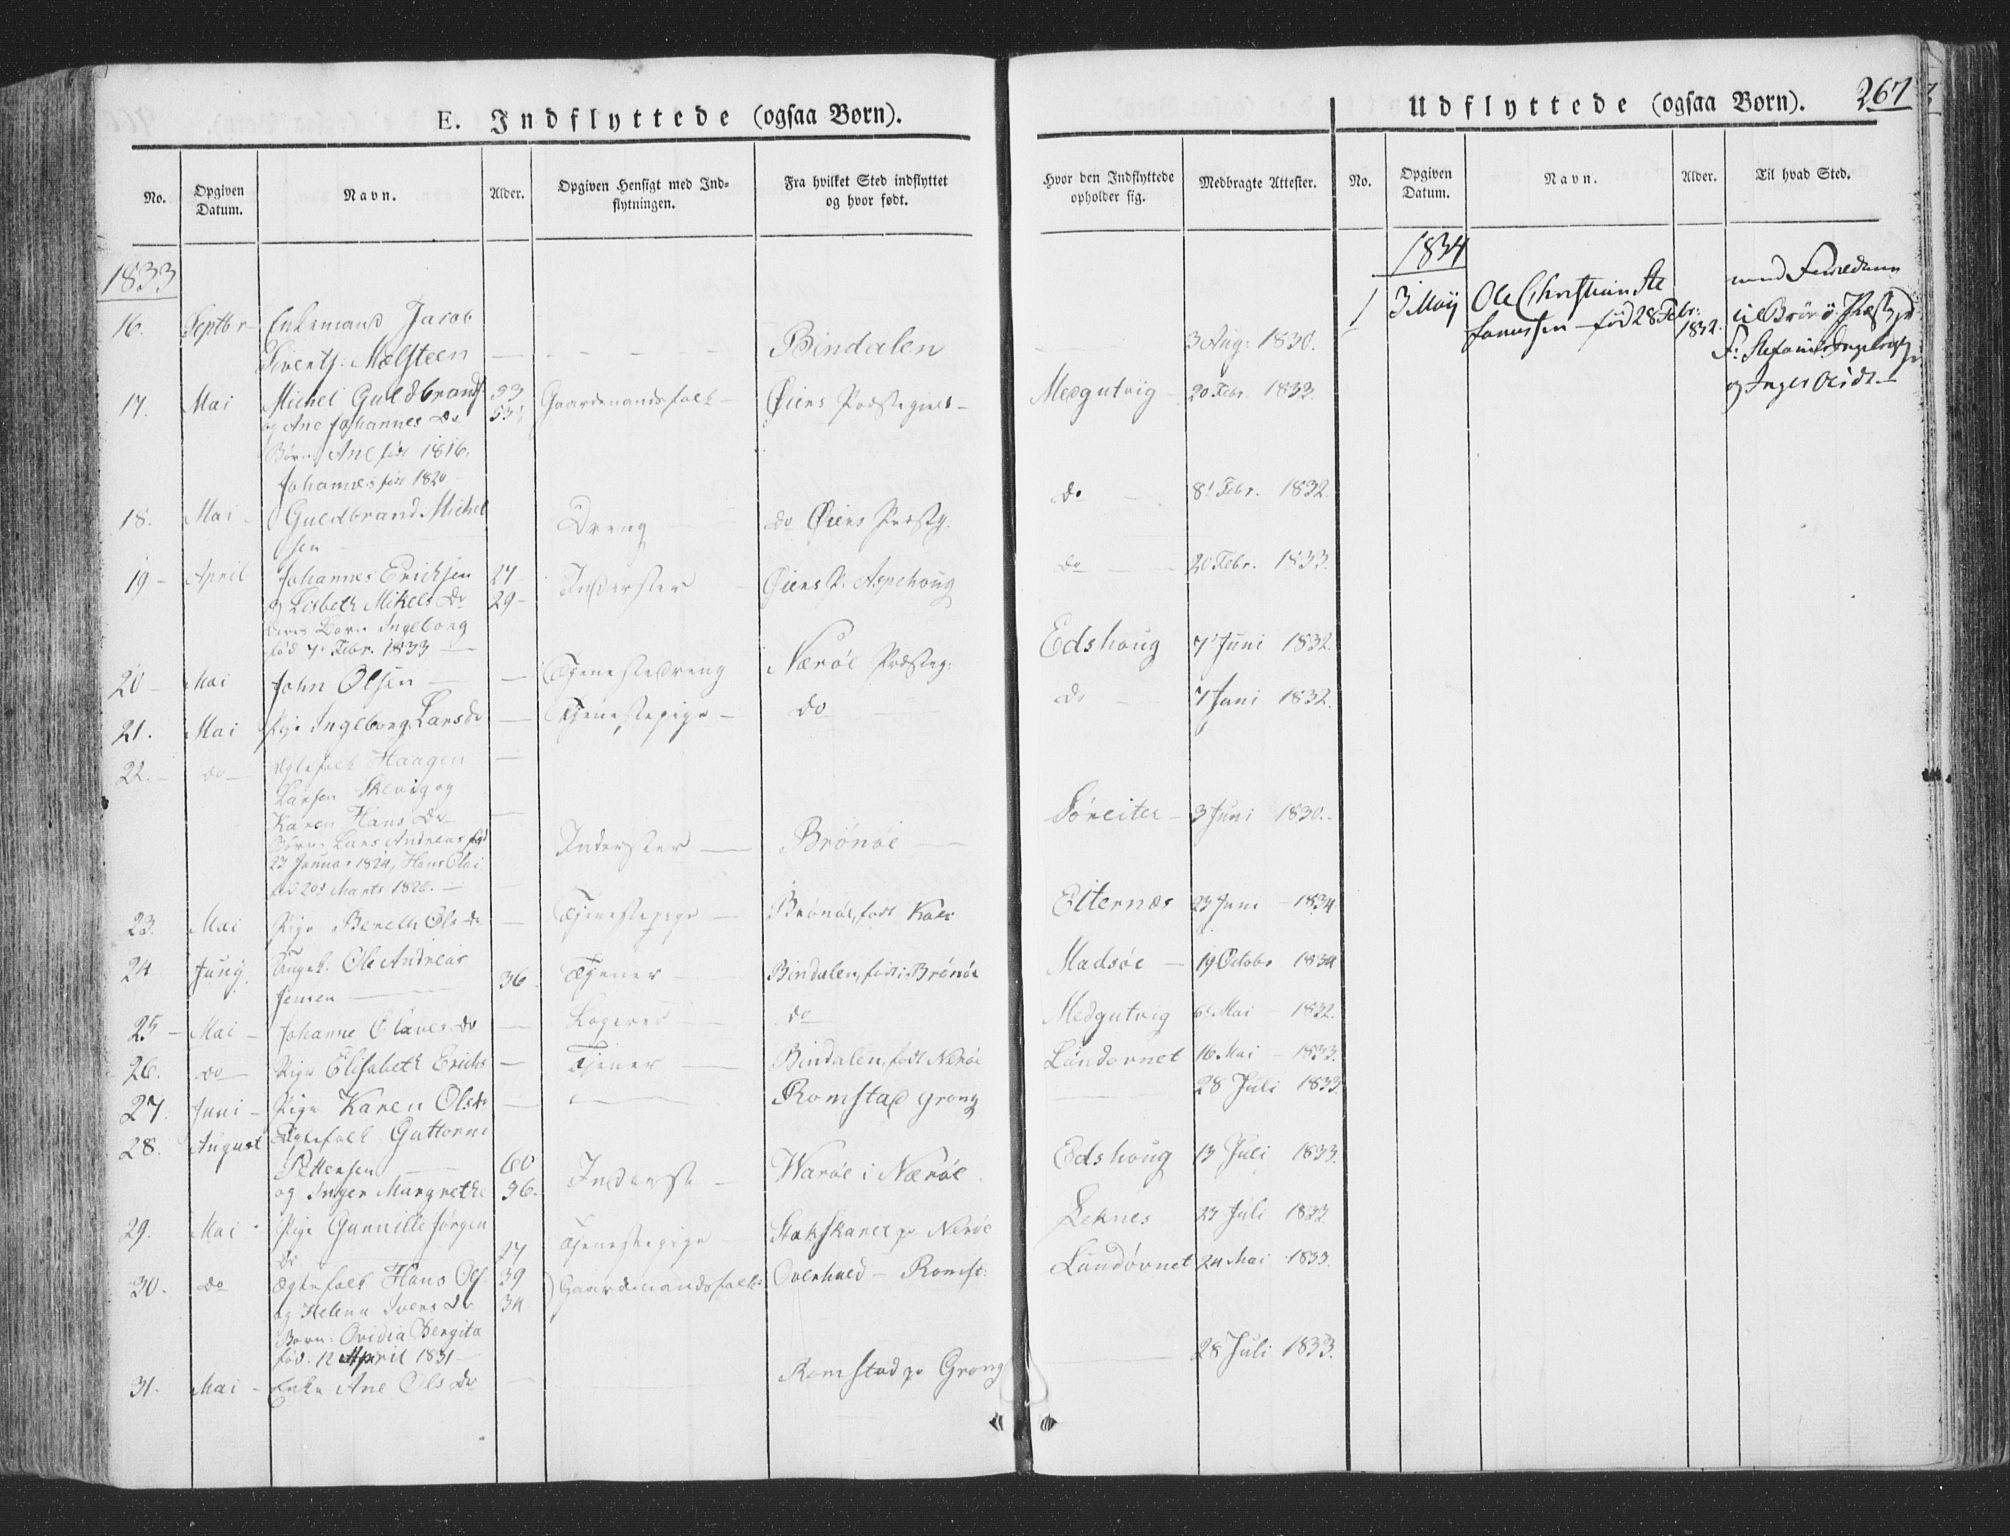 E. Indflyttede (ogsaa Børn).
No.
Opgiven Datum.
Navn.
Alder.
Opgiven Hensigt med Ind-
flytningen.
Fra hvilket Sted indflyttet
og hvor født.
1833
16. Septbr Enkemand Jacob
Siverts: Mælsteen Bindalen
17. Mai Michel Guldbrands 53 Gaardmandsfolk Øiens Præstegield
og Ane Johannes Dr 53
Børn Ane født 1816.
Johannes født 1820
18. Mai Guldbrand Michel Dreng do Øiens Præstg.
sen
19 April Johannes Erichsen 27 Inderster Øiens P. Aspehoug
og Lisbeth Mikels Dr 29
deres Barn Ingeborg
fød 7. Febr. 1833
20 Mai John Olsen Tjenestedreng Nærøe Præsteg:
21. Mai Pige Ingeborg Lars Dr Tjenestepige do
22. do Ægtefolk Haagen
Larsen Skevig og
Karen Hans Dr
Børn: Lars Andreas fød Inderster Brönöe
23 Januar 1824, Hans Olai
fød 20 Marts 1826.
23. Mai Pige Berelh Ols dr Tjenestepige Brönöe, født
24 Juny Ungk. Ole Andreas
Jensen 36. Tjener Bindalen, født i Brönöe
25 Mai Johanne Olaves Dr Logerer do
26. do Pige Elisabeth Erichs Tjener Bindalen, født Nerøe
27. Juni Pige Karen Ols dr Romstad Grong
28. August Ægtefolk Guttorm
Pettersen 60 Inderste Warøe i Nærøe
og Inger Margrethe 56.
29. Mai Pige Gunnille Jørgen Tjenestepige pr Nerøe
Dr 27
30. do Ægtefolk Hans Ols 39 Gaardmandsfolk Overhald Romst:
og Helena Ivers Dr 34
Barn: Ovidia Bergita
fød. 12 April 1831
31. Mai Enke Ane Ols Dr Romstad pr Grong
Hvor den Indflyttede
opholder sig.
Medbragte Attester.
3 Aug: 1830.
Medgutviig 20 Febr. 1833.
do 8' Febr. 1832.
do 20 Febr. 1833.
Edshoug 7' Juni 1832.
do 7 Juni 1832.
Söreiter 3 Juni 1830.
Elternæs 23 Juni 1834
Madsøe 19 Octobr 1834
Medgutvig 6 Mai 1832.
Lundövnet 16 Mai 1833.
28 Juli 1833
Edshoug 13 Juli 1833.
Leknes 23 Juli 1833
Lundövnet 24 Mai 1833.
28 Juli 1833.
Udflyttede (ogsaa Børn). 267
No.
Opgiven Datum.
Navn.
Alder.
Til hvad Sted.
1834
1 3 Maij Ole Christian Ste
fanussen fød 28 Febr:
1832.
med Forældrene
til Brönö Præstgd
F: Stefanus Ingebrigts
og Inger Olsdr